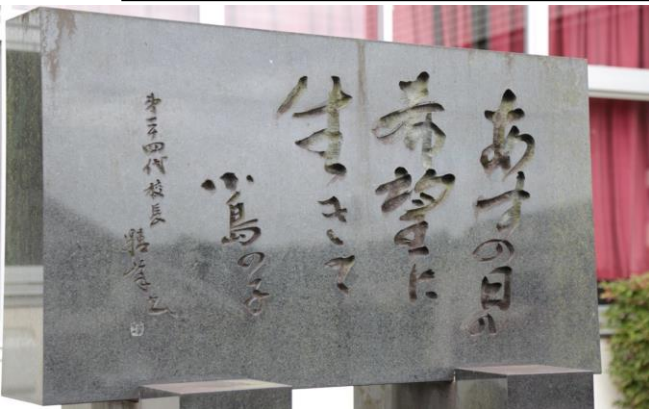 あすの日ハ
希望に
生きて
小島の子
第二十四代校長